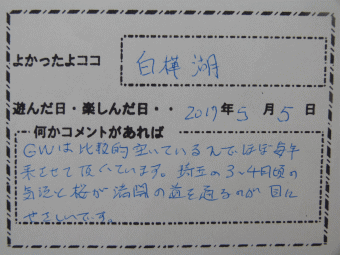 よかったよココ
白樺湖
遊んだ日・楽しんだ日・・ 2019年5月5日
何かコメントがあれば
GWは比較的空いているんでほぼ毎年
来させて頂いています。埼玉の3~4月頃の
気温と桜が満開の道を通るのが目に
やさしいです。